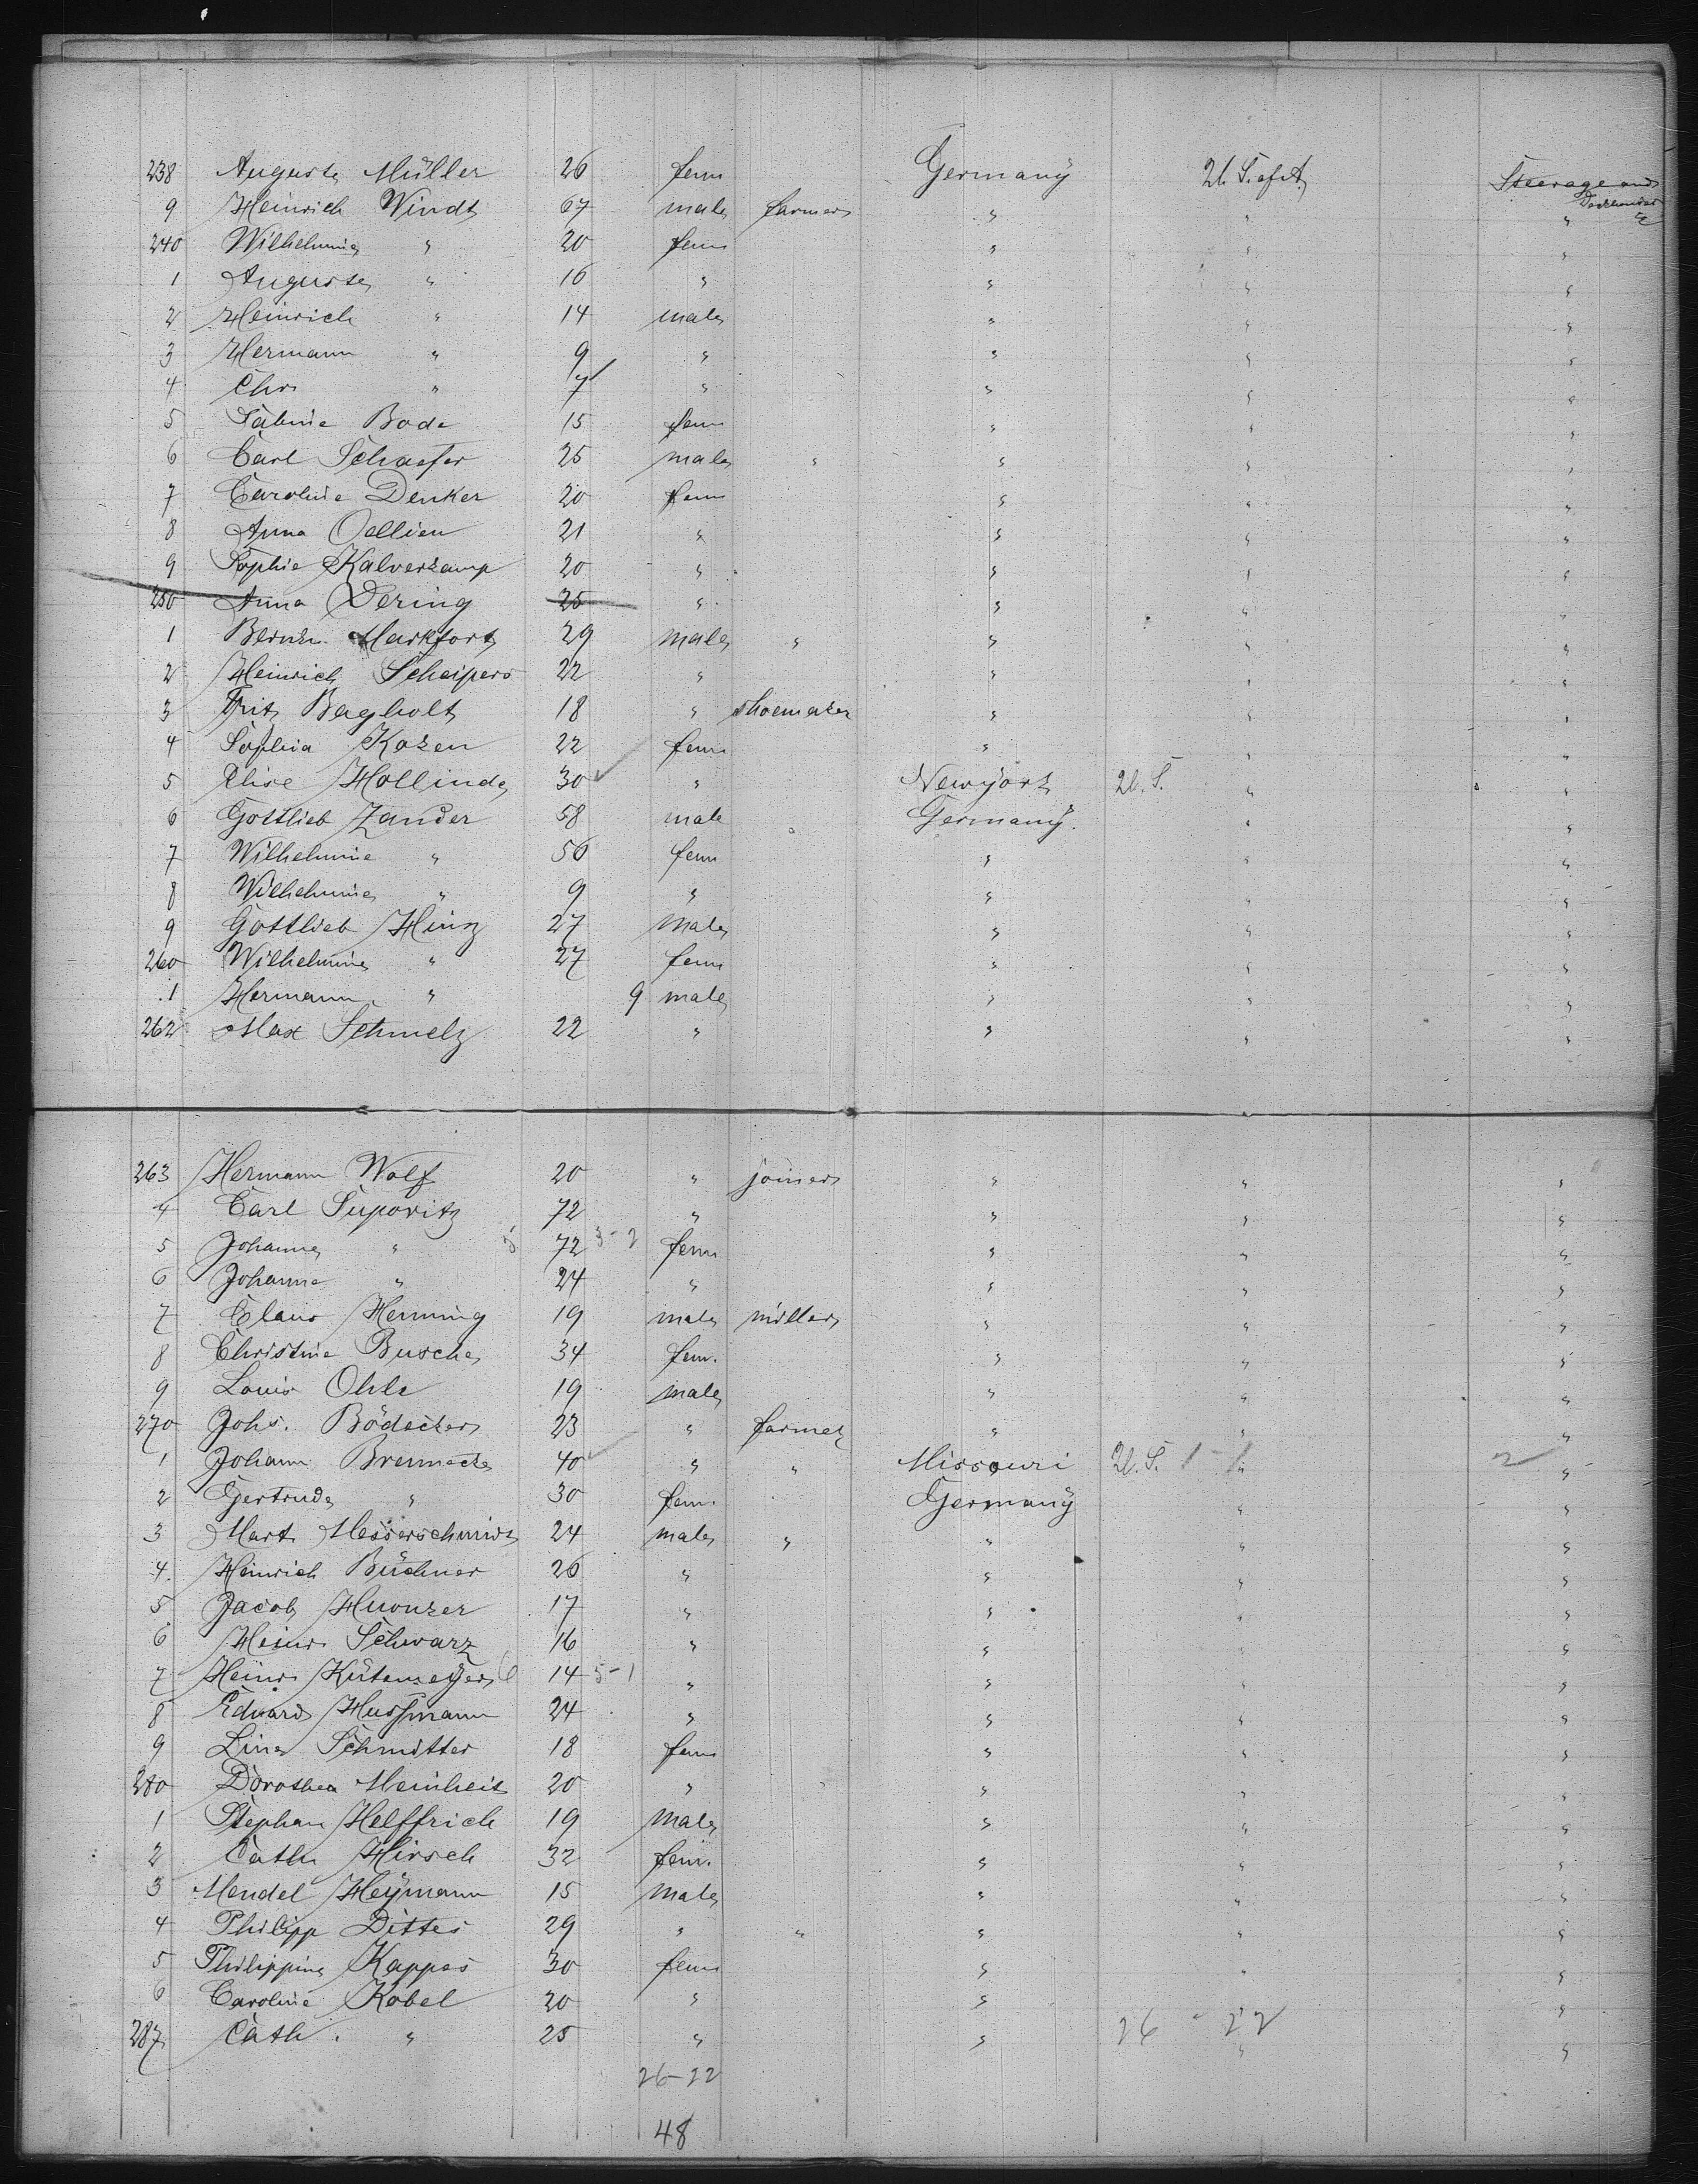 238 Auguste Müller 26 fem Germany U. S. of A. Steerage and Deckhouse
9 Heinrich Windt 67 male farmer " " "
240 Wilhelmine " 20 fem " " "
1 Auguste " 16 " " " "
2 Heinrich " 14 male " " "
3 Hermann " 9 " " " "
4 Chr. " 7 " " " "
5 Sabine Bode 15 fem " " "
6 Carl Schaefer 25 male " " " "
7 Caroline Denker 20 fem " " "
8 Anna Oellien 21 " " " "
9 Sophie Kalverkamp 20 " " " "
250 Anna Dering 25 " " " "
1 Bernh. Markfort 29 male " " " "
2 Heinrich Scheipers 22 " " " "
3 Fritz Bagholt 18 " shoemaker " " "
4 Sophia Kozen 22 fem " " "
5 Elise Hollinde 30 " Newyork U. S. " "
6 Gottlieb Zander 58 male " Germany. " "
7 Wilhelmine " 56 fem " " "
8 Wilhelmine " 9 " " " "
9 Gottlieb Hinz 27 male " " "
260 Wilhelmine " 27 fem " " "
1 Hermann " 9 male " " "
262 Max Schmelz 22 " " " "
263 Hermann Wolf 20 " joiner " " "
4 Carl Supovitz 72 " " " "
5 Johanne " 72 3-2 fem " " "
6 Johanne " 24 " " " "
7 Claus Henning 19 male miller " " "
8 Christine Busche 34 fem. " " "
9 Louis Ohle 19 male " " "
270 Johs. Bödecker 23 " farmer " " "
1 Johann Brennecke 40 " " Missouri U. S. 1-1 " 2 "
2 Gertrude " 30 fem. Germany " "
3 Mart. Messerschmidt 24 male " " " "
4. Heinrich Büchner 26 " " " "
5 Jacob Hunzer 17 " " " "
6 Heinr. Schwarz 16 " " " "
7 Heinr. Kütemeyer 6 14 5-1 " " " "
8 Eduard Hussmann 24 " " " "
9 Line Schmitter 18 fem " " "
280 Dorothea Meinheit 20 " " " "
1 Stephan Helffrich 19 male " " "
2 Cath. Hirsch 32 fem. " " "
3 Mendel Heymann 15 male " " "
4 Philipp Dittes 29 " " " " "
5 Philippine Kappes 30 fem " " "
6 Caroline Kobel 20 " " "
287 Cath. " 25 " " 26 - 22 " "
26-22
48